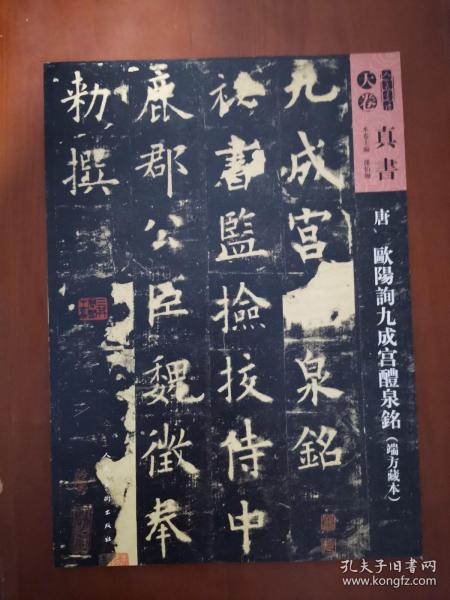 九成宫泉銘
秘書監撿挍侍中
鹿郡公臣魏徵奉
勅撰
天卷
真書
唐、歐陽詢九成宫醴泉銘(端方藏本)
术出版社
孔夫子旧书网
www.kongfz.com